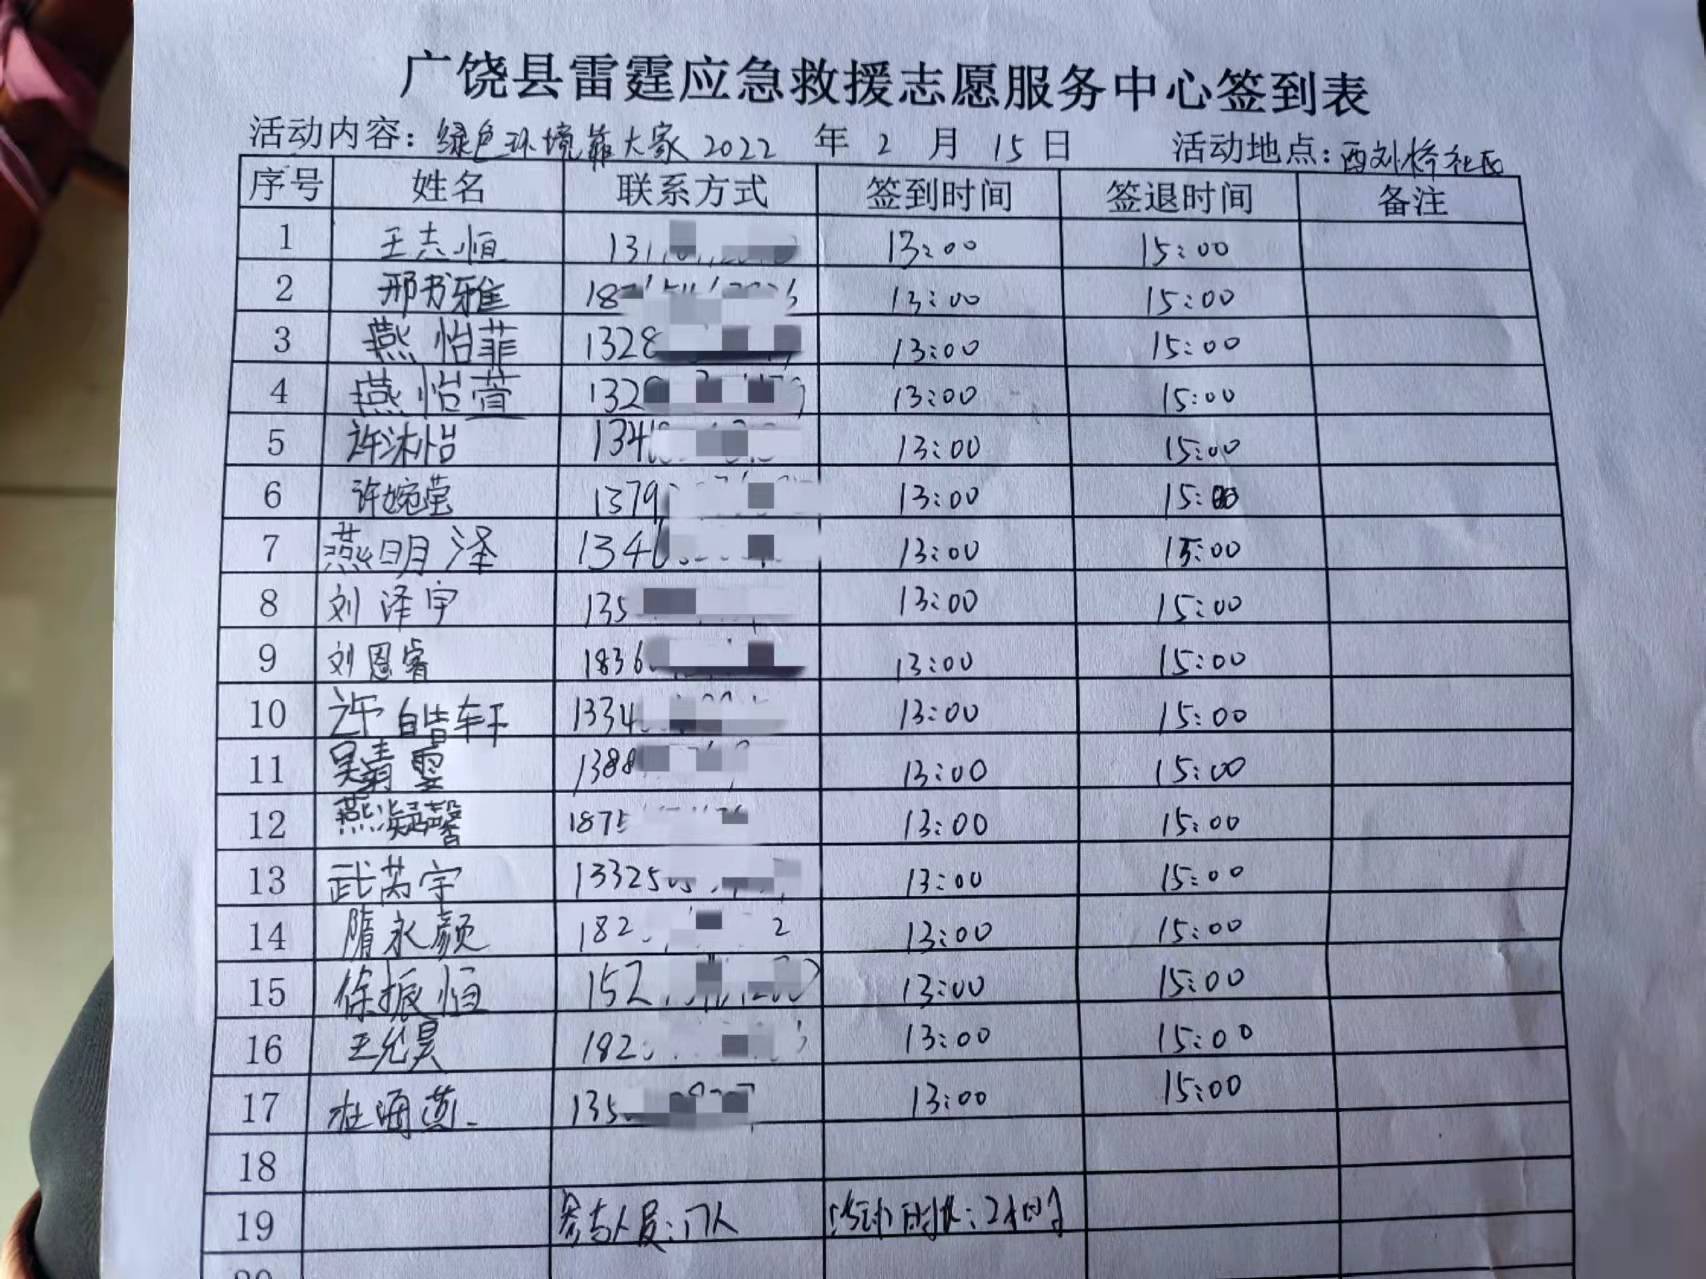 广饶县雷霆应急救援志愿服务中心签到表
活动内容：绿色环境靠大家 2022 年 2 月 15 日 活动地点：西刘桥社区
序号 姓名 联系方式 签到时间 签退时间 备注
1 王志恒 131 13:00 15:00
2 邢书雅 18 13:00 15:00
3 燕怡菲 1328 13:00 15:00
4 燕怡萱 132 13:00 15:00
5 许沐怡 134 13:00 15:00
6 许婉莹 1379 13:00 15:00
7 燕明泽 134 13:00 15:00
8 刘泽宇 135 13:00 15:00
9 刘恩睿 1836 13:00 15:00
10 许皓轩 1334 13:00 15:00
11 1388 13:00 15:00
12 燕凝馨 187 13:00 15:00
13 武芮宇 13325 13:00 15:00
14 隋永颜 182 2 13:00 15:00
15 徐振恒 152 13:00 15:00
16 王允昊 182 13:00 15:00
17 杜海燕 135 13:00 15:00
18
19 参与人员：17人 活动时长：2小时